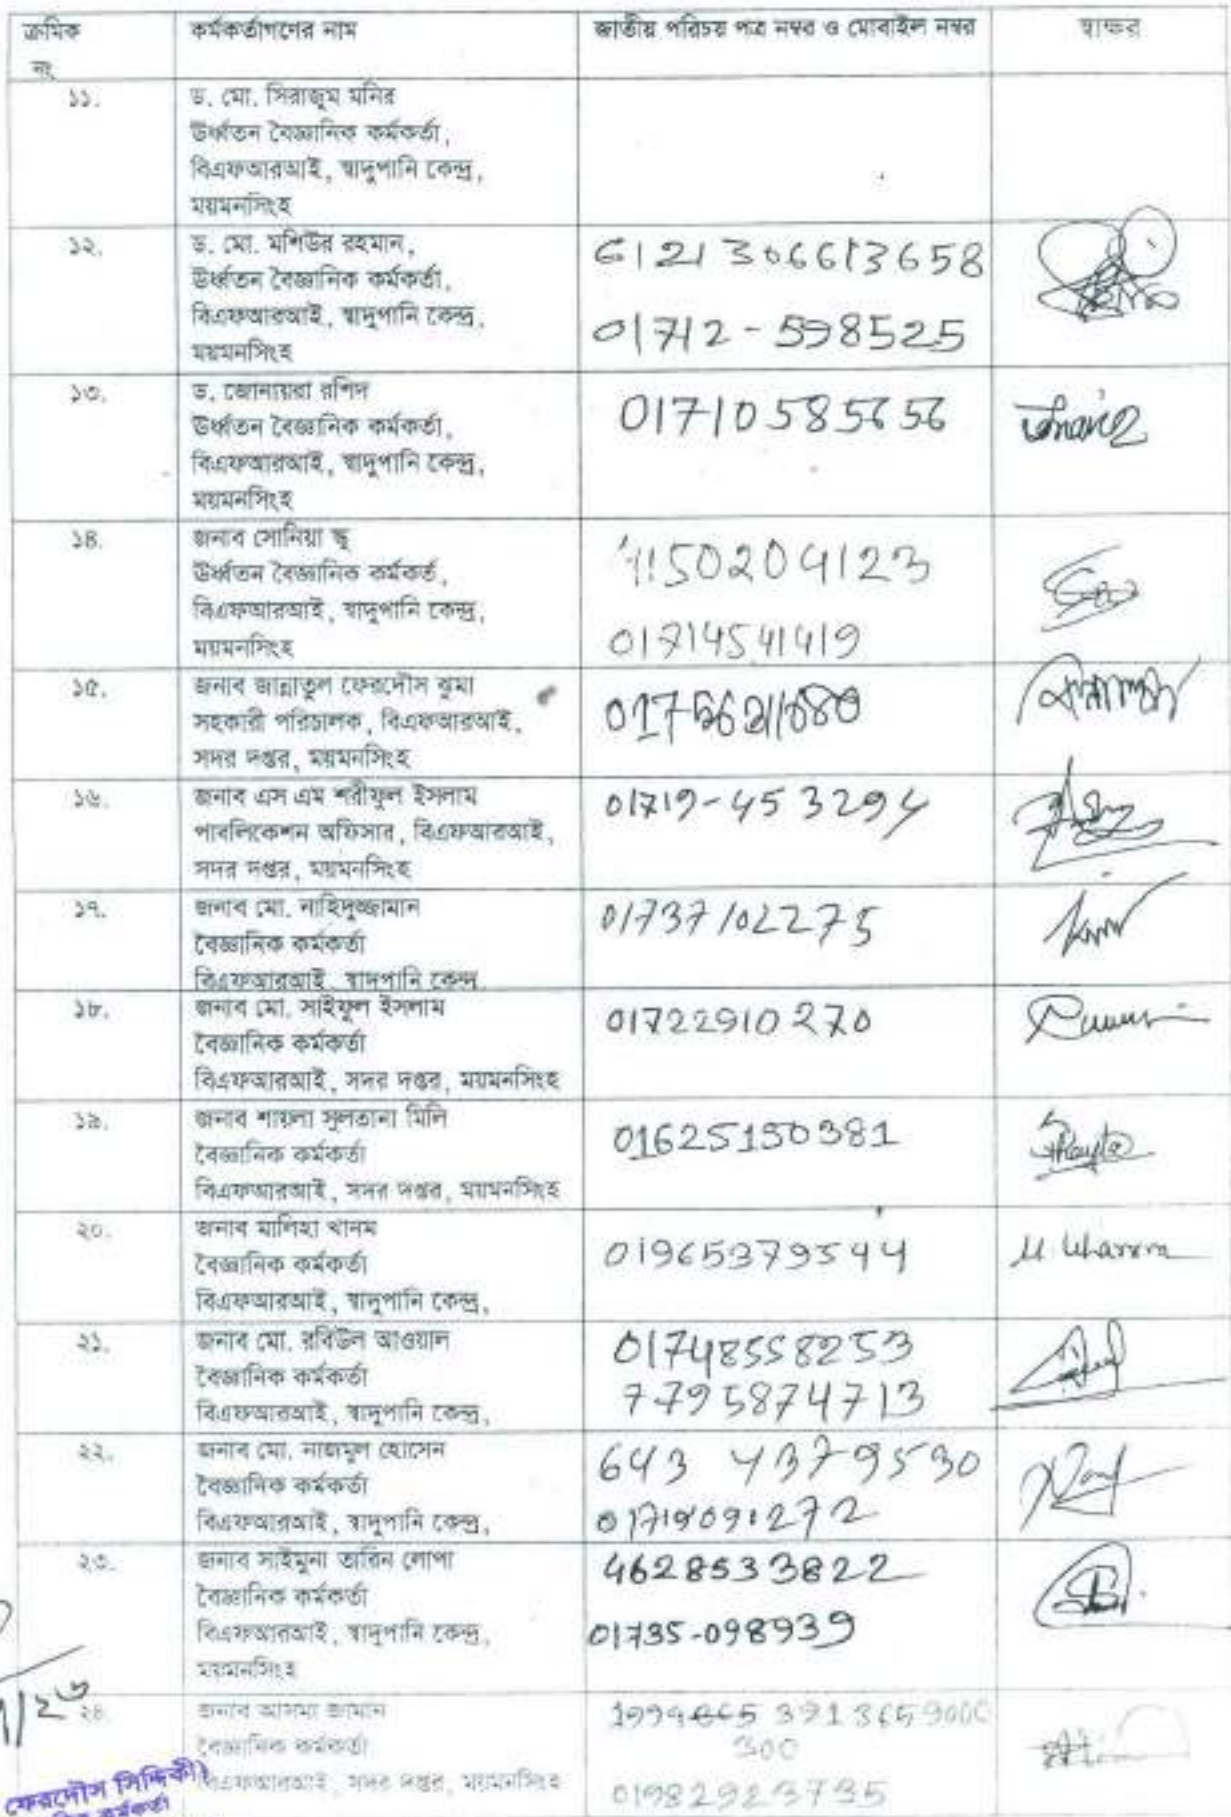 ক্রমিক নং কর্মকর্তাগণের নাম জাতীয় পরিচয় পত্র নম্বর ও মোবাইল নম্বর স্বাক্ষর
১১. ড. মো. সিরাজুম মনির
উর্ধ্বতন বৈজ্ঞানিক কর্মকর্তা,
বিএফআরআই, স্বাদুপানি কেন্দ্র,
ময়মনসিংহ
১২. ড. মো. মশিউর রহমান,
উর্ধ্বতন বৈজ্ঞানিক কর্মকর্তা,
বিএফআরআই, স্বাদুপানি কেন্দ্র,
ময়মনসিংহ
6121306613658
01712-598525
১৩. ড. জোনায়রা রশিদ
উর্ধ্বতন বৈজ্ঞানিক কর্মকর্তা,
বিএফআরআই, স্বাদুপানি কেন্দ্র,
ময়মনসিংহ
01710585656
১৪. জনাব সোনিয়া স্কু
উর্ধ্বতন বৈজ্ঞানিক কর্মকর্ত,
বিএফআরআই, স্বাদুপানি কেন্দ্র,
ময়মনসিংহ
01714541419
১৫. জনাব জান্নাতুল ফেরদৌস ঝুমা
সহকারী পরিচালক, বিএফআরআই,
সদর দপ্তর, ময়মনসিংহ
১৬. জনাব এস এম শরীফুল ইসলাম
পাবলিকেশন অফিসার, বিএফআরআই,
সদর দপ্তর, ময়মনসিংহ
01719-453294
১৭. জনাব মো. নাহিদুজ্জামান
বৈজ্ঞানিক কর্মকর্তা
বিএফআরআই, স্বাদুপানি কেন্দ্র
01737102275
১৮. জনাব মো. সাইফুল ইসলাম
বৈজ্ঞানিক কর্মকর্তা
বিএফআরআই, সদর দপ্তর, ময়মনসিংহ
01722910270
১৯. জনাব শায়লা সুলতানা মিলি
বৈজ্ঞানিক কর্মকর্তা
বিএফআরআই, সদর দপ্তর, ময়মনসিংহ
01625150381
২০. জনাব মালিহা খানম
বৈজ্ঞানিক কর্মকর্তা
বিএফআরআই, স্বাদুপানি কেন্দ্র,
01965379544
২১. জনাব মো. রবিউল আওয়াল
বৈজ্ঞানিক কর্মকর্তা
বিএফআরআই, স্বাদুপানি কেন্দ্র,
01748558253
7795874713
২২. জনাব মো. নাজমুল হোসেন
বৈজ্ঞানিক কর্মকর্তা
বিএফআরআই, স্বাদুপানি কেন্দ্র,
643 4379530
01719091272
২৩. জনাব সাইমুনা তারিন লোপা
বৈজ্ঞানিক কর্মকর্তা
বিএফআরআই, স্বাদুপানি কেন্দ্র,
ময়মনসিংহ
4628533822
01735-098939
২৪. জনাব আসমা জামান
বৈজ্ঞানিক কর্মকর্তা
বিএফআরআই, সদর দপ্তর, ময়মনসিংহ
01982923735
ফেরদৌস সিদ্দিকী)
কর্মকর্তা